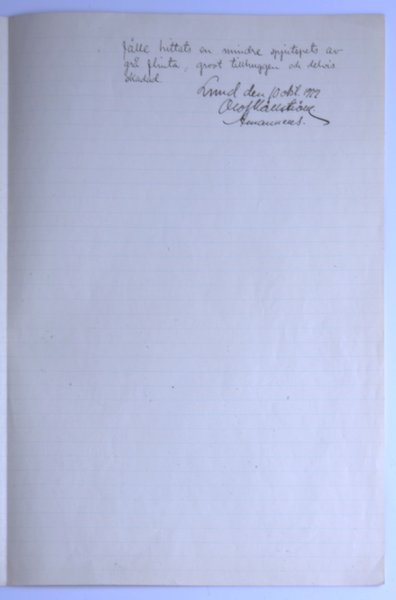 fälle hittats en mindre spjutspets av
grå flinta, grovt tillhuggen och delvis
skadad.
Lund den 10 okt. 1922
Olof Källström
Amanuens.